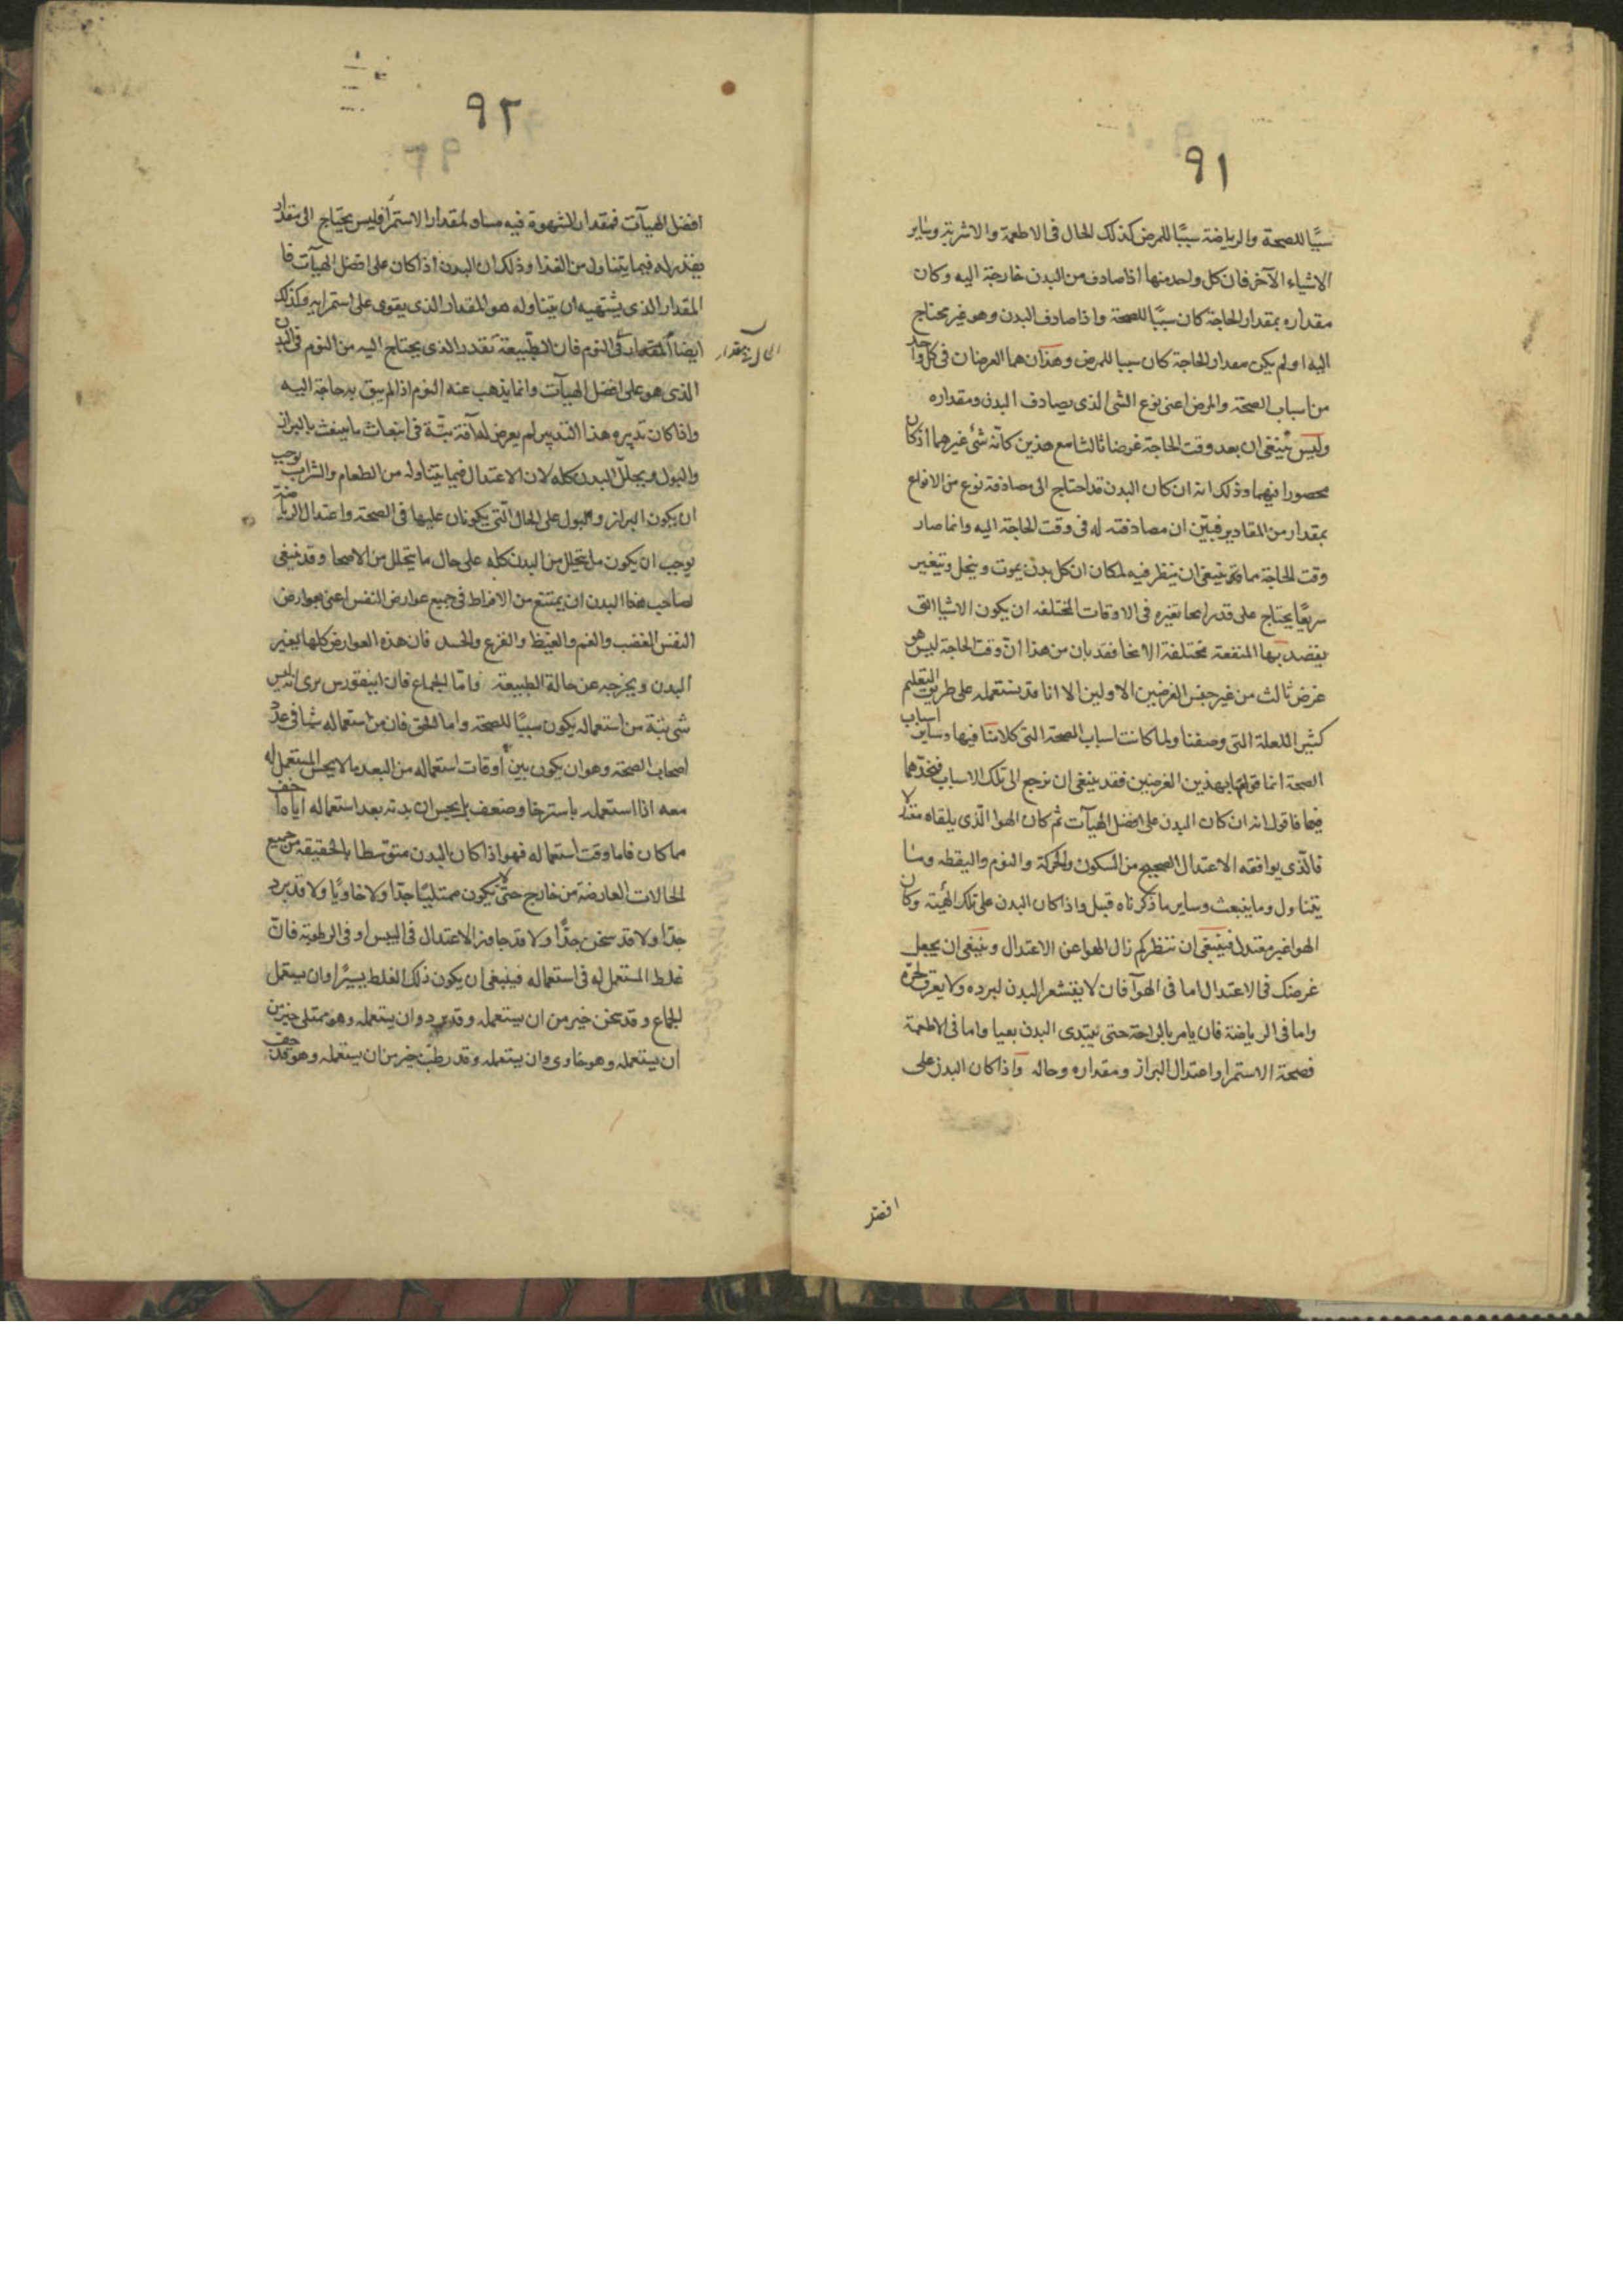 ٩١
سببًا للصحة والرياضة سببًا للمرض كذلك الحال فى الاطعمة والاشربة وساير
الاشياء الآخر فان كل واحد منها اذا صادف من البدن خارجة اليه وكان
مقداره بمقدار الحاجة كان سببًا للصحة واذا صادف البدن وهو غير محتاج
اليه او لم يكن بمقدار الحاجة كان سببا للمرض وهذان هما الغرضان فى كل واحد
من اسباب الصحة والمرض اعنى نوع الشى الذى يصادف البدن ومقداره
وليس ينبغى ان يعد وقت الحاجة غرضا ثالثا مع هذين كانه شئ غيرهما اذ كان
محصورا فيهما وذلك انه ان كان البدن قد احتاج الى مصادفة نوع من الانواع
بمقدار من المقادير فبيّن ان مصادفته له فى وقت الحاجة اليه وانما صار
وقت الحاجة مما قد ينبغى ان ينظر فيه لمكان ان كل بدن يموت وينحل ويتغير
سريعًا يحتاج على قدر انحا تغيره فى الاوقات المختلفه ان يكون الاشيا التى
يقصد بها المنفعة مختلفة الانحا فقد بان من هذا ان وقت الحاجة ليس هو
غرض ثالث من غير جنس الغرضين الاولين الا انا قد نستعمله على طريق التعليم
كثيرا للعلة التى وصفنا ولما كانت اسباب الصحة التى كلامنا فيها وساير اسباب
الصحة انما قوامها بهذين الغرضين فقد ينبغى ان نرجع الى تلك الاسباب فنحدهما
فيها فاقول انه ان كان البدن على افضل الهيآت ثم كان الهوا الذى يلقاه معتدلا
فالّذى يوافقه الاعتدال الصحيح من السكون والحركة والنوم واليقظه وما
يتناول وما ينبعث وساير ما ذكرناه قبل واذا كان البدن على تلك الهيئة وكان
الهوا غير معتدل فينبغى ان ننظر كم زال الهوا عن الاعتدال وينبغى ان يجعل
غرضك فى الاعتدال اما فى الهوآ فان لا يقشعر البدن لبرده ولا يعرق لحرّه
واما فى الرياضة فان يامر بالراحة حتى يبتدى البدن بعيا واما فى الاطعمة
فصحة الاستمرا واعتدال البراز ومقداره وحاله واذا كان البدن على
افضل
٩٢
افضل الهيآت فمقدار الشهوة فيه مساو لمقدار الاستمرآ فليس يحتاج الى مقدار
يقدر له فيما يتناول من الغذا وذلك ان البدن اذا كان على افضل الهيآت فا
المقدار الذى يشتهيه ان يتناوله هو المقدار الذى يقوى على استمرايه وكذلك
ايضا المقدار فى النوم فان الطبيعة تقدر الذى يحتاج اليه من النوم فى البدن
الحال بمقدار
الذى هو على افضل الهيآت وانما يذهب عنه النوم اذا لم يبق به حاجة اليه
واذا كان تدبيره هذا التدبير لم يعرض له آفة بتّة فى انبعاث ما ينبعث بالبراز
والبول ويحلل البدن كله لان الاعتدال فيما يتناوله من الطعام والشراب يوجب
ان يكون البراز والبول على الحال التى يكونان عليها فى الصحة واعتدال الرياضة
يوجب ان يكون ما يتحلل من البدن كله على حال ما يتحلل من الاصحا وقد ينبغى
لصاحب هذا البدن ان يمتنع من الافراط فى جميع عوارض النفس اعنى بعوارض
النفس الغضب والغم والغيظ والفزع والحسد فان هذه العوارض كلها يغير
البدن ويخرجه عن حالة الطبيعة واما الجماع فان ابيقورس يرى انه ليس
شى بتة من استعماله يكون سببًا للصحة واما الحق فان من استعماله شيا فى عدد
اصحاب الصحة وهو ان يكون بين اوقات استعماله من البعد ما لا يحس المستعمل له
معه اذا استعمله باسترخا وضعف بل يحس ان بدنه بعد استعماله اياه اخف
مما كان فاما وقت استعماله فهو اذا كان البدن متوسطا بالحقيقة من جميع
الحالات العارضة من خارج حتى لا يكون ممتليًا جدا ولا خاويًا ولا قد برد
جدًا ولا قد سخن جدًّا ولا قد جاوز الاعتدال فى اليبس او فى الرطوبة فان
غلط المستعمل له فى استعماله فينبغى ان يكون ذلك الغلط يسيرًا وان يستعمل
الجماع وقد سخن خير من ان يستعمله وقد برد وان يستعمله وهو ممتلى خير من
ان يستعمله وهو خاوى وان يستعمله وقد رطب خير من ان يستعمله وهو قد جف